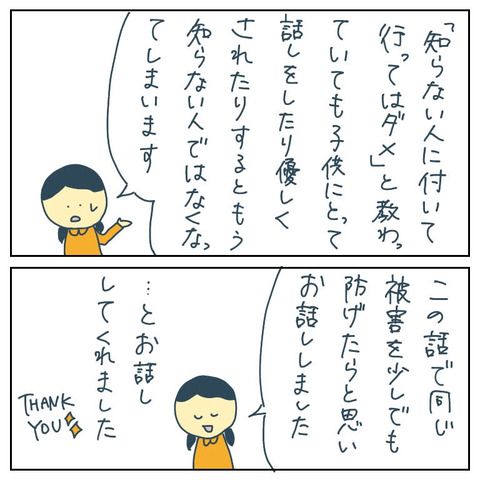 「知らない人に付いて
行ってはダメ」と教わっ
ていても子供にとって
話しをしたり優しく
されたりするともう
知らない人ではなくなっ
てしまいます
この話で同じ
被害を少しでも
防げたらと思い
お話ししました
…とお話し
してくれました
THANK
YOU